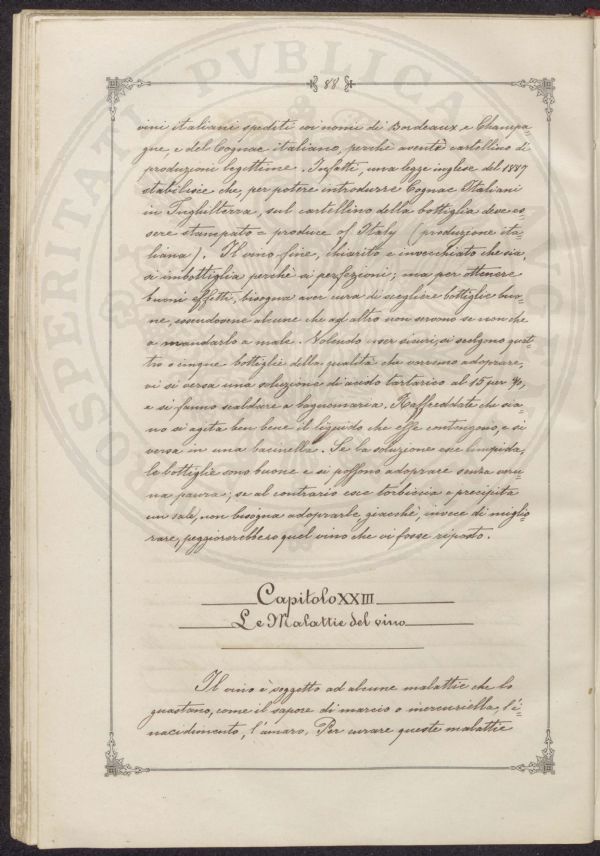 88.
vini italiani spediti coi nomi di Bordeaux e Champa=
gne, e del Cognac italiano, perchè aventi cartellino di
produzioni legittime. Infatti, una legge inglese del 1887
stabilisce che, per potere introdurre Cognac Italiani
in Inghilterra, sul cartellino della bottiglia deve es=
sere stampato = produce of Italy (produzione ita=
liana). Il vino fine, chiarito e invecchiato che sia,
si imbottiglia perchè si perfezioni; ma per ottenere
buoni effetti, bisogna aver cura di scegliere bottiglie buo=
ne, essendovene alcune che ad altro non servono se non che
a mandarlo a male. Volendo esser sicuri, si scelgono quat=
tro o cinque bottiglie della qualità che verremo adoprare,
vi si versa una soluzione di acido tartarico al 15 per %,
e si fanno scaldare a bagnomaria. Raffreddate che sia=
no si agita ben bene il liquido che esse contengono, e si
versa in una bacinella. Se la soluzione esce limpida,
le bottiglie sono buone e si possono adoprare senza veru=
na paura; se al contrario esce torbiccia e precipita
un sale, non bisogna adoprarle, giacchè, invece di miglio=
rare, peggiorerebbero quel vino che vi fosse riposto.
Capitolo XXIII
Le Malattie del vino
Il vino è soggetto ad alcune malattie che lo
guastano, come il sapore di marcio o mercuriella, l'i=
nacidimento, l'amaro. Per curare queste malattie
PROSPERITATI PVBLICAE AVGENDAE